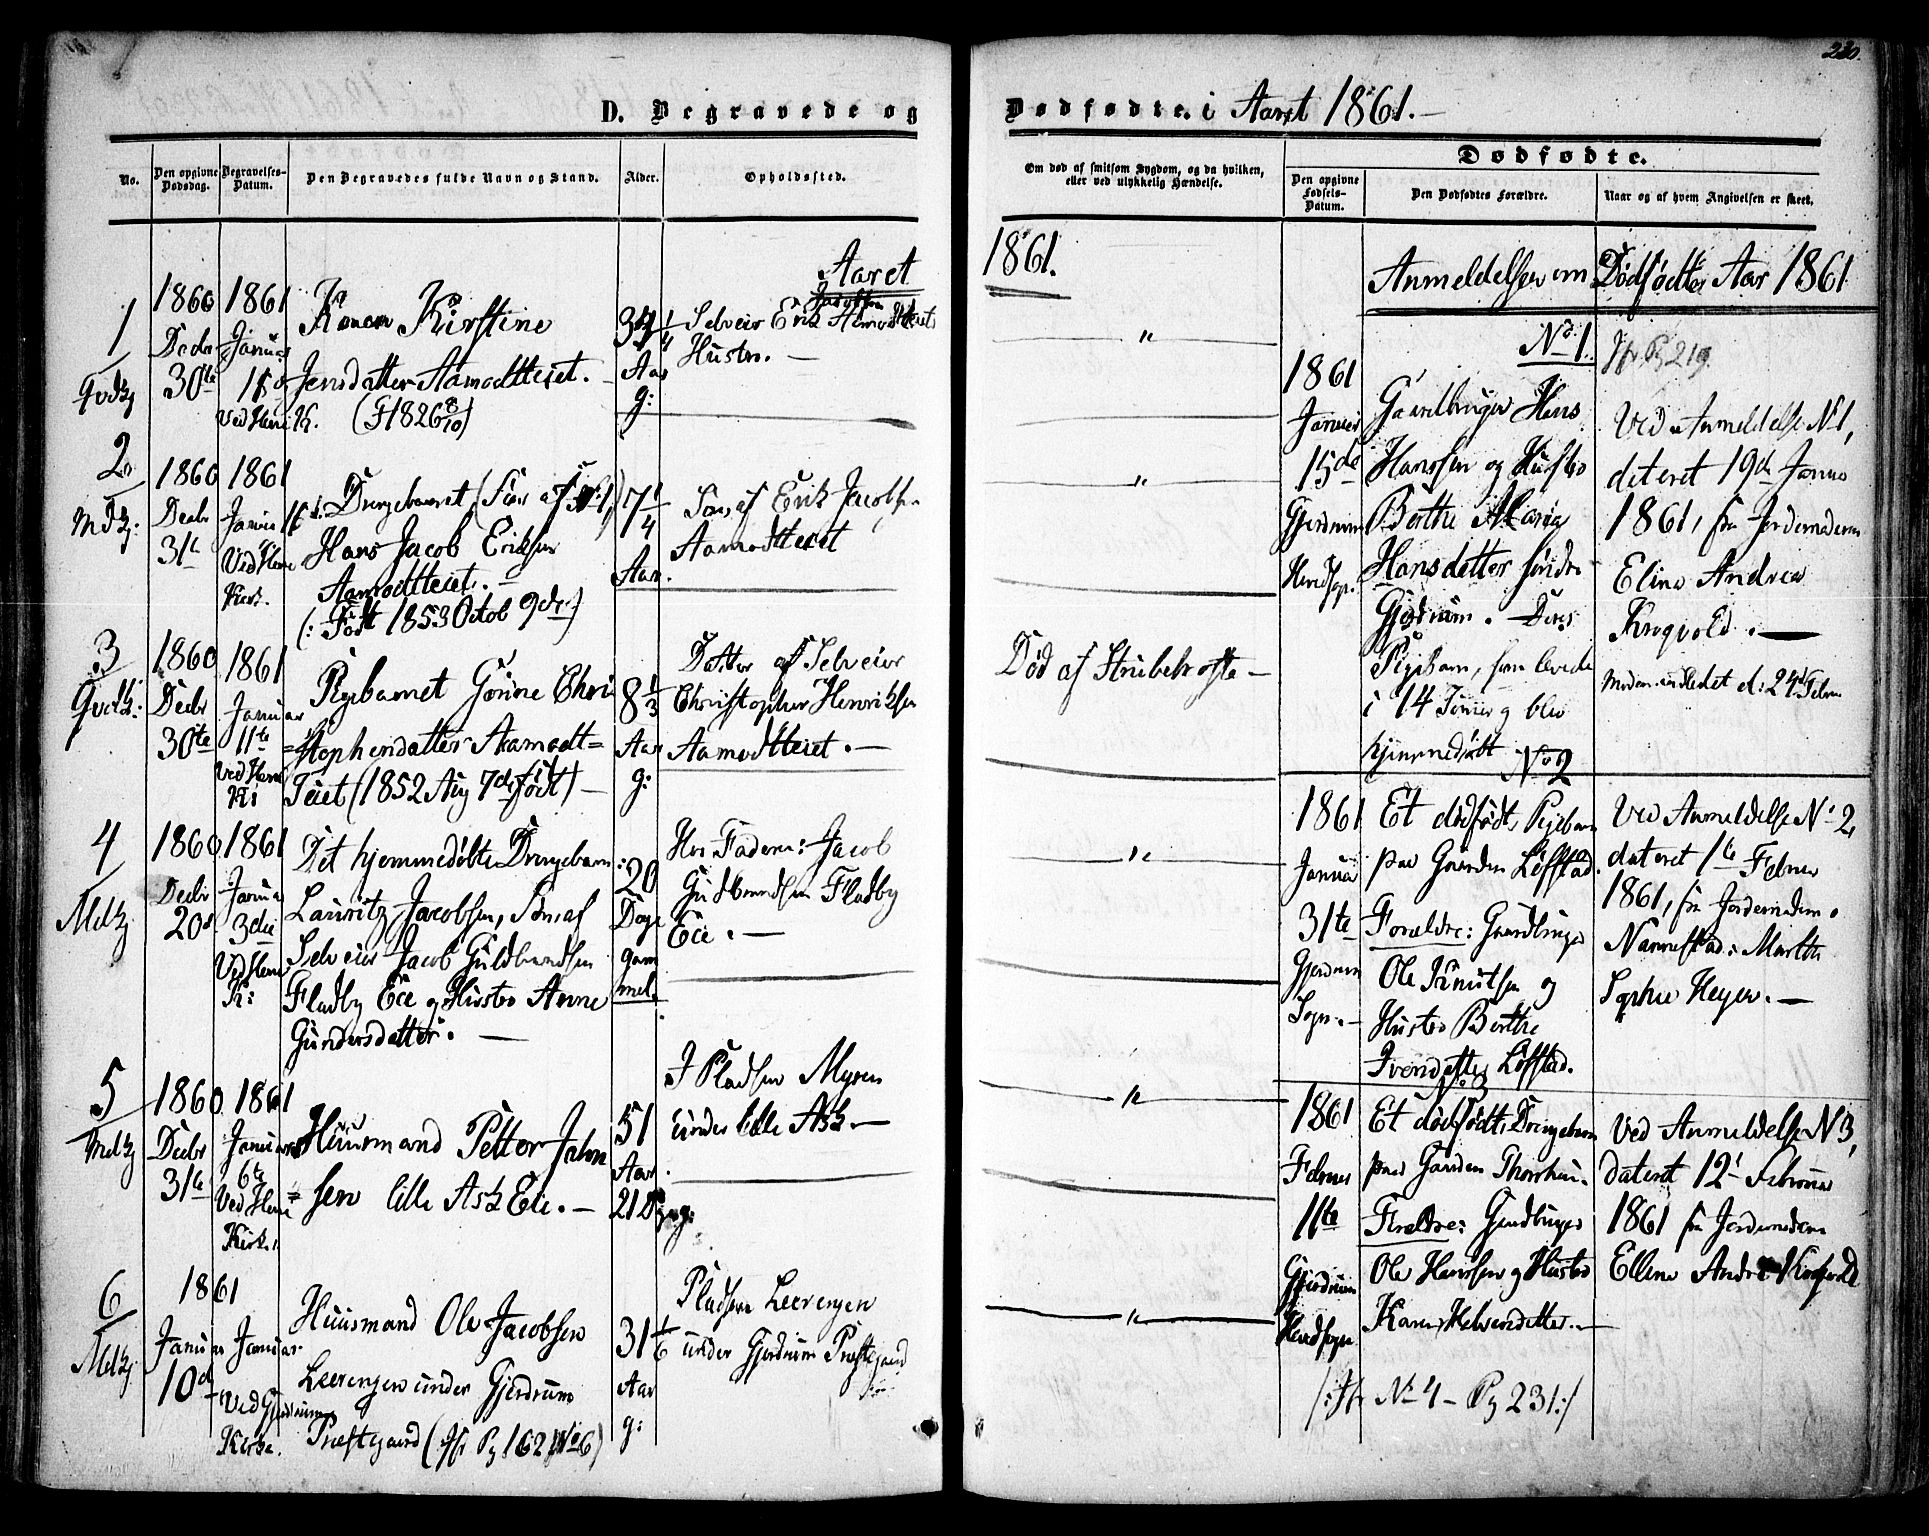 230.
D. Begravede og
Dødfødte. i Aaret 1861.-
No.
Den opgivne Dødsdag.
Begravelses-Datum.
Den Begravedes fulde Navn og Stand.
Alder.
Opholdssted.
Om død af smitsom Sygdom, og da hvilken,
eller ved ulykkelig Hændelse.
Dødfødte.
Den opgivne Fødsels-Datum.
Den Dødfødtes Forældre.
Naar og af hvem Angivelsen er skeet.
Aaret
1861.
1
Qvdkj
1860
Decbr
30te
1861
Januar
Ved Heni K.
Konen Kirstine
Jensdatter Aamodtteiet.
(F 1826 8/10)
34 1/4
Aar
g:
Selveier Erik Jacobsen Aamodtteiets
Hustro. -
"
2
Mdkj:
1860
Decbr
31te
1861
Januar
Ved Heni
Kirk.
Drengebarnet, (Søn af No 1,)
Hans Jacob Eriksen
Aamodtteiet. -
(: Født 1853 Octob 9de:)
7 1/4
Aar.
Søn af Erik Jacobsen
Aamodtteiet
"
3
Qvdkj:
1860
Decbr
30te
1861
Januar
11te
Ved Heni
Ki
Pigebarnet Gorine Chri
=stophersdatter Aamodt=
Teiet (1852 Aug 7de født) -
8 1/3
Aar
g:
Datter af Selveier
Christopher Henriksen
Aamodtteiet. -
Død af Strubehoste -
4
Mdkj
1860
Decbr
20de
1861
Januar
3die
Ved Heni
K:
Det hjemmedøbte Drengebarn
Lauritz Jacobsen, Søn af
Selveier Jacob Guldbrandsen
Fladby Eie og Hustro Anne
Gundersdatter. -
20
Dage
gam
mel.
Hos Faderen: Jacob
Guldbrandsen Fladby
Eie. -
"
5
Mdkj
1860
Decbr
31te
1861
Januar
6te
Ved Heni
Kirk.
Huusmand Petter John
=sen lille Ask Eie. -
51
Aar
21 D
g:
I Pladsen Myren
under lille Ask -
"
6
Mdkj
1861
Januar
10de
Januar
Ved Gjerdrum
Kirke.
Huusmand Ole Jacobsen
Leerengen under Gjerdrum
Præstegaard (Jfr Pg 162 No 6)
31 1/6
Aar
g:
Pladsen Leerengen
under Gjerdrum Præstegaard
"
Anmeldelser om Dødfødte Aar 1861
No 1.
Jfr Pg 219.
1861
Januar
15de
Gjerdrum
Hovedsogn.
Gaardbruger Hans
Hanssen og Hustro
Berthe Maria
Hansdatter søndre
Gjerdrum. - Deres
Pigebarn, som levede
i 14 Timer og blev
hjemmedøbt
Ved Anmeldelse No 1,
dateret 19de Januar
1861, fra Jordemoderen
Eline Andrea
Krogvold. -
No 2
1861
Januar
31te
Gjerdrum
Sogn. -
Et dødfødt Pigebarn
paa Gaarden Løfstad.
Forældre: Gaardbruger
Ole Knutsen og
Hustro Berthe
Iversdatter Løfstad.
Ved Anmeldelse No 2,
dateret 1te Februar
1861, fra Jordemoderen
Nannestad: Marthe
Sophie Heyer. -
No 3
1861
Februar
11te
Gjerdrum
Hovedsogn
Et dødfødt Drengebarn
paa Gaarden
Forældre: Gaardbruger
Ole Hanssen og Hustro
Karen Helvesdatter. -
Ved Anmeldelse No 3,
dateret 12te Februar
1861 fra Jordemoderen
Elline Andrea Krogvold
/: Jfr No 4 - Pg 231:/